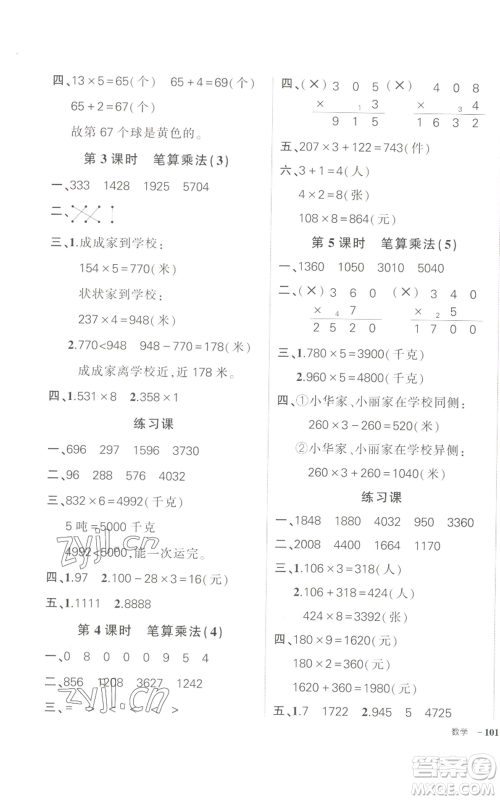 四、13×5=65(个)　65+4=69(个)
65+2=67(个)
故第 67 个球是黄色的。
第 3 课时　笔算乘法(3)
一、333　1428　1925　5704
二、
三、1.成成家到学校:
154×5=770(米)
状状家到学校:
237×4=948(米)
2.770<948　948-770=178(米)
成成家离学校近,近 178 米。
四、1.531×8　2.358×1
练习课
一、696　297　1596　3730
二、9　8　324　756　568
三、832×6=4992(千克)
5 吨=5000 千克
4992<5000,能一次运完。
四、1.97　2.100-28×3=16(元)
五、1.1111　2.8888
第 4 课时　笔算乘法(4)
一、0　8　0　0　0　9　5　4
二、856　1208　3627　1242
三、=　<　=　<　>
四、(×)　3 0 5　(×)　4 0 8
×　1 3　×　6 8
9 1 5　
五、207×3+122=743(件)
六、3+1=4(人)
4×2=8(张)
108×8=864(元)
第 5 课时　笔算乘法(5)
一、1360　1050　3010　5040
二、(×)　3 6 0　(×)　3 4 0
×　4 7　×　2 5
2 5 2 0　1 7 0 0
三、1.780×5=3900(千克)
2.960×5=4800(千克)
四、①小华家、小丽家在学校同侧:
260×3-260=520(米)
②小华家、小丽家在学校异侧:
260×3+260=1040(米)
练习课
一、1848　1880　4430　950　3360
二、2008　2080　1010　1100
三、1.106×3=318(人)
2.106+318=424(人)
424×8=3392(张)
四、180×9=1620(元)
180×2=360(元)
1620+360=1980(元)
五、1.7　1722　2.945　5　4725
数学　-101
zyjl.cn
zyjl.cn
答案圈
MXQE.COM